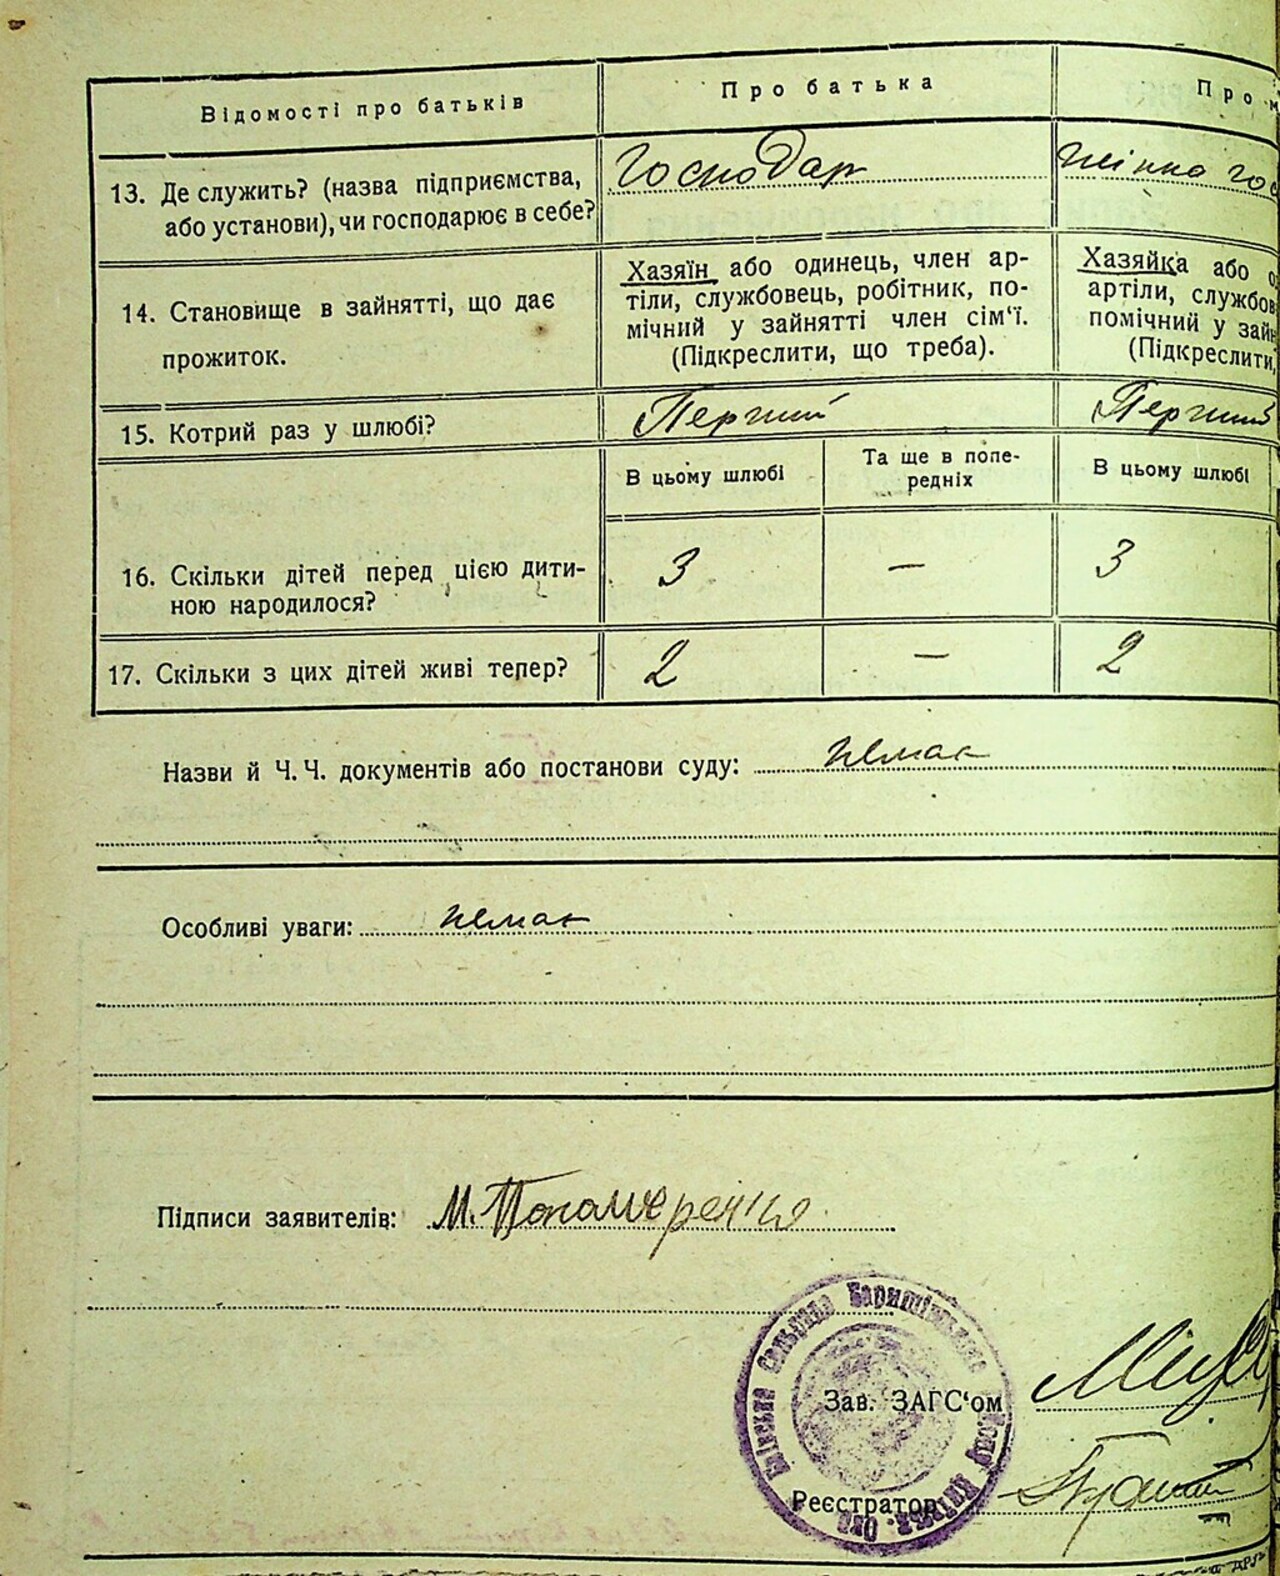 Відомості про батьків Про батька Про м
13. Де служить? (назва підприємства, Господар жінка гос
або установи), чи господарює в себе?
14. Становище в зайнятті, що дає
прожиток.
Хазяїн або одинець, член ар-
тіли, службовець, робітник, по-
мічний у зайнятті член сім‘ї.
(Підкреслити, що треба).
Хазяйка або о
артіли, службов
помічний у зайн
(Підкреслити,
15. Котрий раз у шлюбі? Перший Перший
В цьому шлюбі Та ще в попе-
редніх В цьому шлюбі
16. Скільки дітей перед цією дити-
ною народилося? 3 — 3
17. Скільки з цих дітей живі тепер? 2 — 2
Назви й Ч. Ч. документів або постанови суду: немає
Особливі уваги: немає
Підписи заявителів: М.
Сільрада Баришівського
Зав. ЗАГС‘ом
Реєстратор